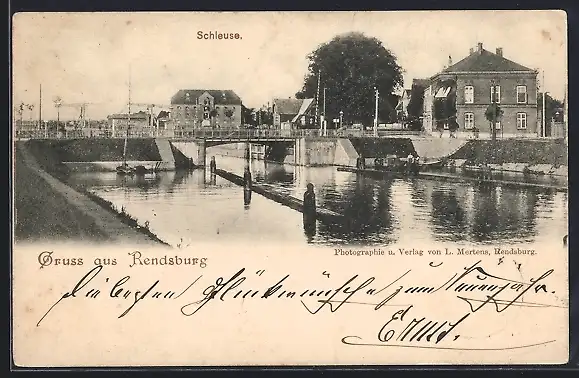 Schleuse.
Gruss aus Rendsburg
Photographie u. Verlag von L. Mertens, Rendsburg.
Die besten Glückwünsche zum Neuen Jahre.
Ernst.